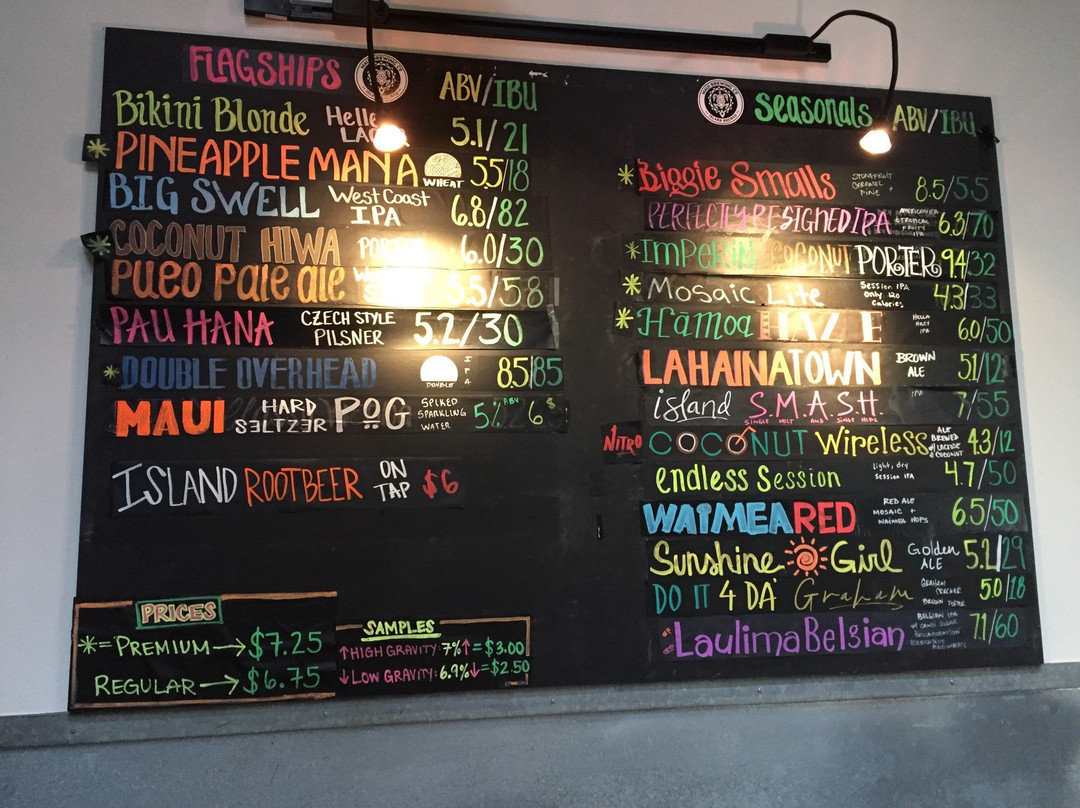 FLAGSHIPS ABV/IBU
Bikini Blonde 5.1/21
* PINEAPPLE MANA WHEAT 5.5/18
BIG SWELL West Coast IPA 6.8/82
* COCONUT HIWA PORTER 6.0/30
PUEO Pale ale 5.5/58
PAU HANA CZECH STYLE PILSNER 5.2/30
* DOUBLE OVERHEAD DOUBLE IPA 8.5/85
MAUI HARD SELTZER POG SPIKED SPARKLING WATER 5% ABV 6$
ISLAND ROOTBEER ON TAP $6
PRICES
*=PREMIUM→$7.25
REGULAR→$6.75
SAMPLES
↑HIGH GRAVITY: 7%↑=$3.00
↓LOW GRAVITY: 6.9%↓=$2.50
Seasonals ABV/IBU
* Biggie Smalls STONEFRUIT CARAMEL PINE + 8.5/55
PERFECTLY RESIGNED IPA 6.3/70
* Imperial COCONUT PORTER 9.4/32
* Mosaic Lite Session IPA Only 120 Calories 4.3/33
* Hāmoa HAZE 6.0/50
LAHAINATOWN BROWN ALE 5.1/12
island S.M.A.S.H. IPA 7/55
SINGLE MALT AND SINGLE HOPS
NITRO COCONUT Wireless ALE BREWED W/ LACTOSE & COCONUT 4.3/12
endless Session light, dry Session IPA 4.7/50
WAIMEA RED RED ALE MOSAIC + WAIMEA HOPS 6.5/50
Sunshine Girl Golden ALE 5.2/29
DO IT 4 DA Graham GRAHAM CRACKER BROWN PORTER 5.0/18
Laulima Belgian BELGIAN IPA 7.1/60